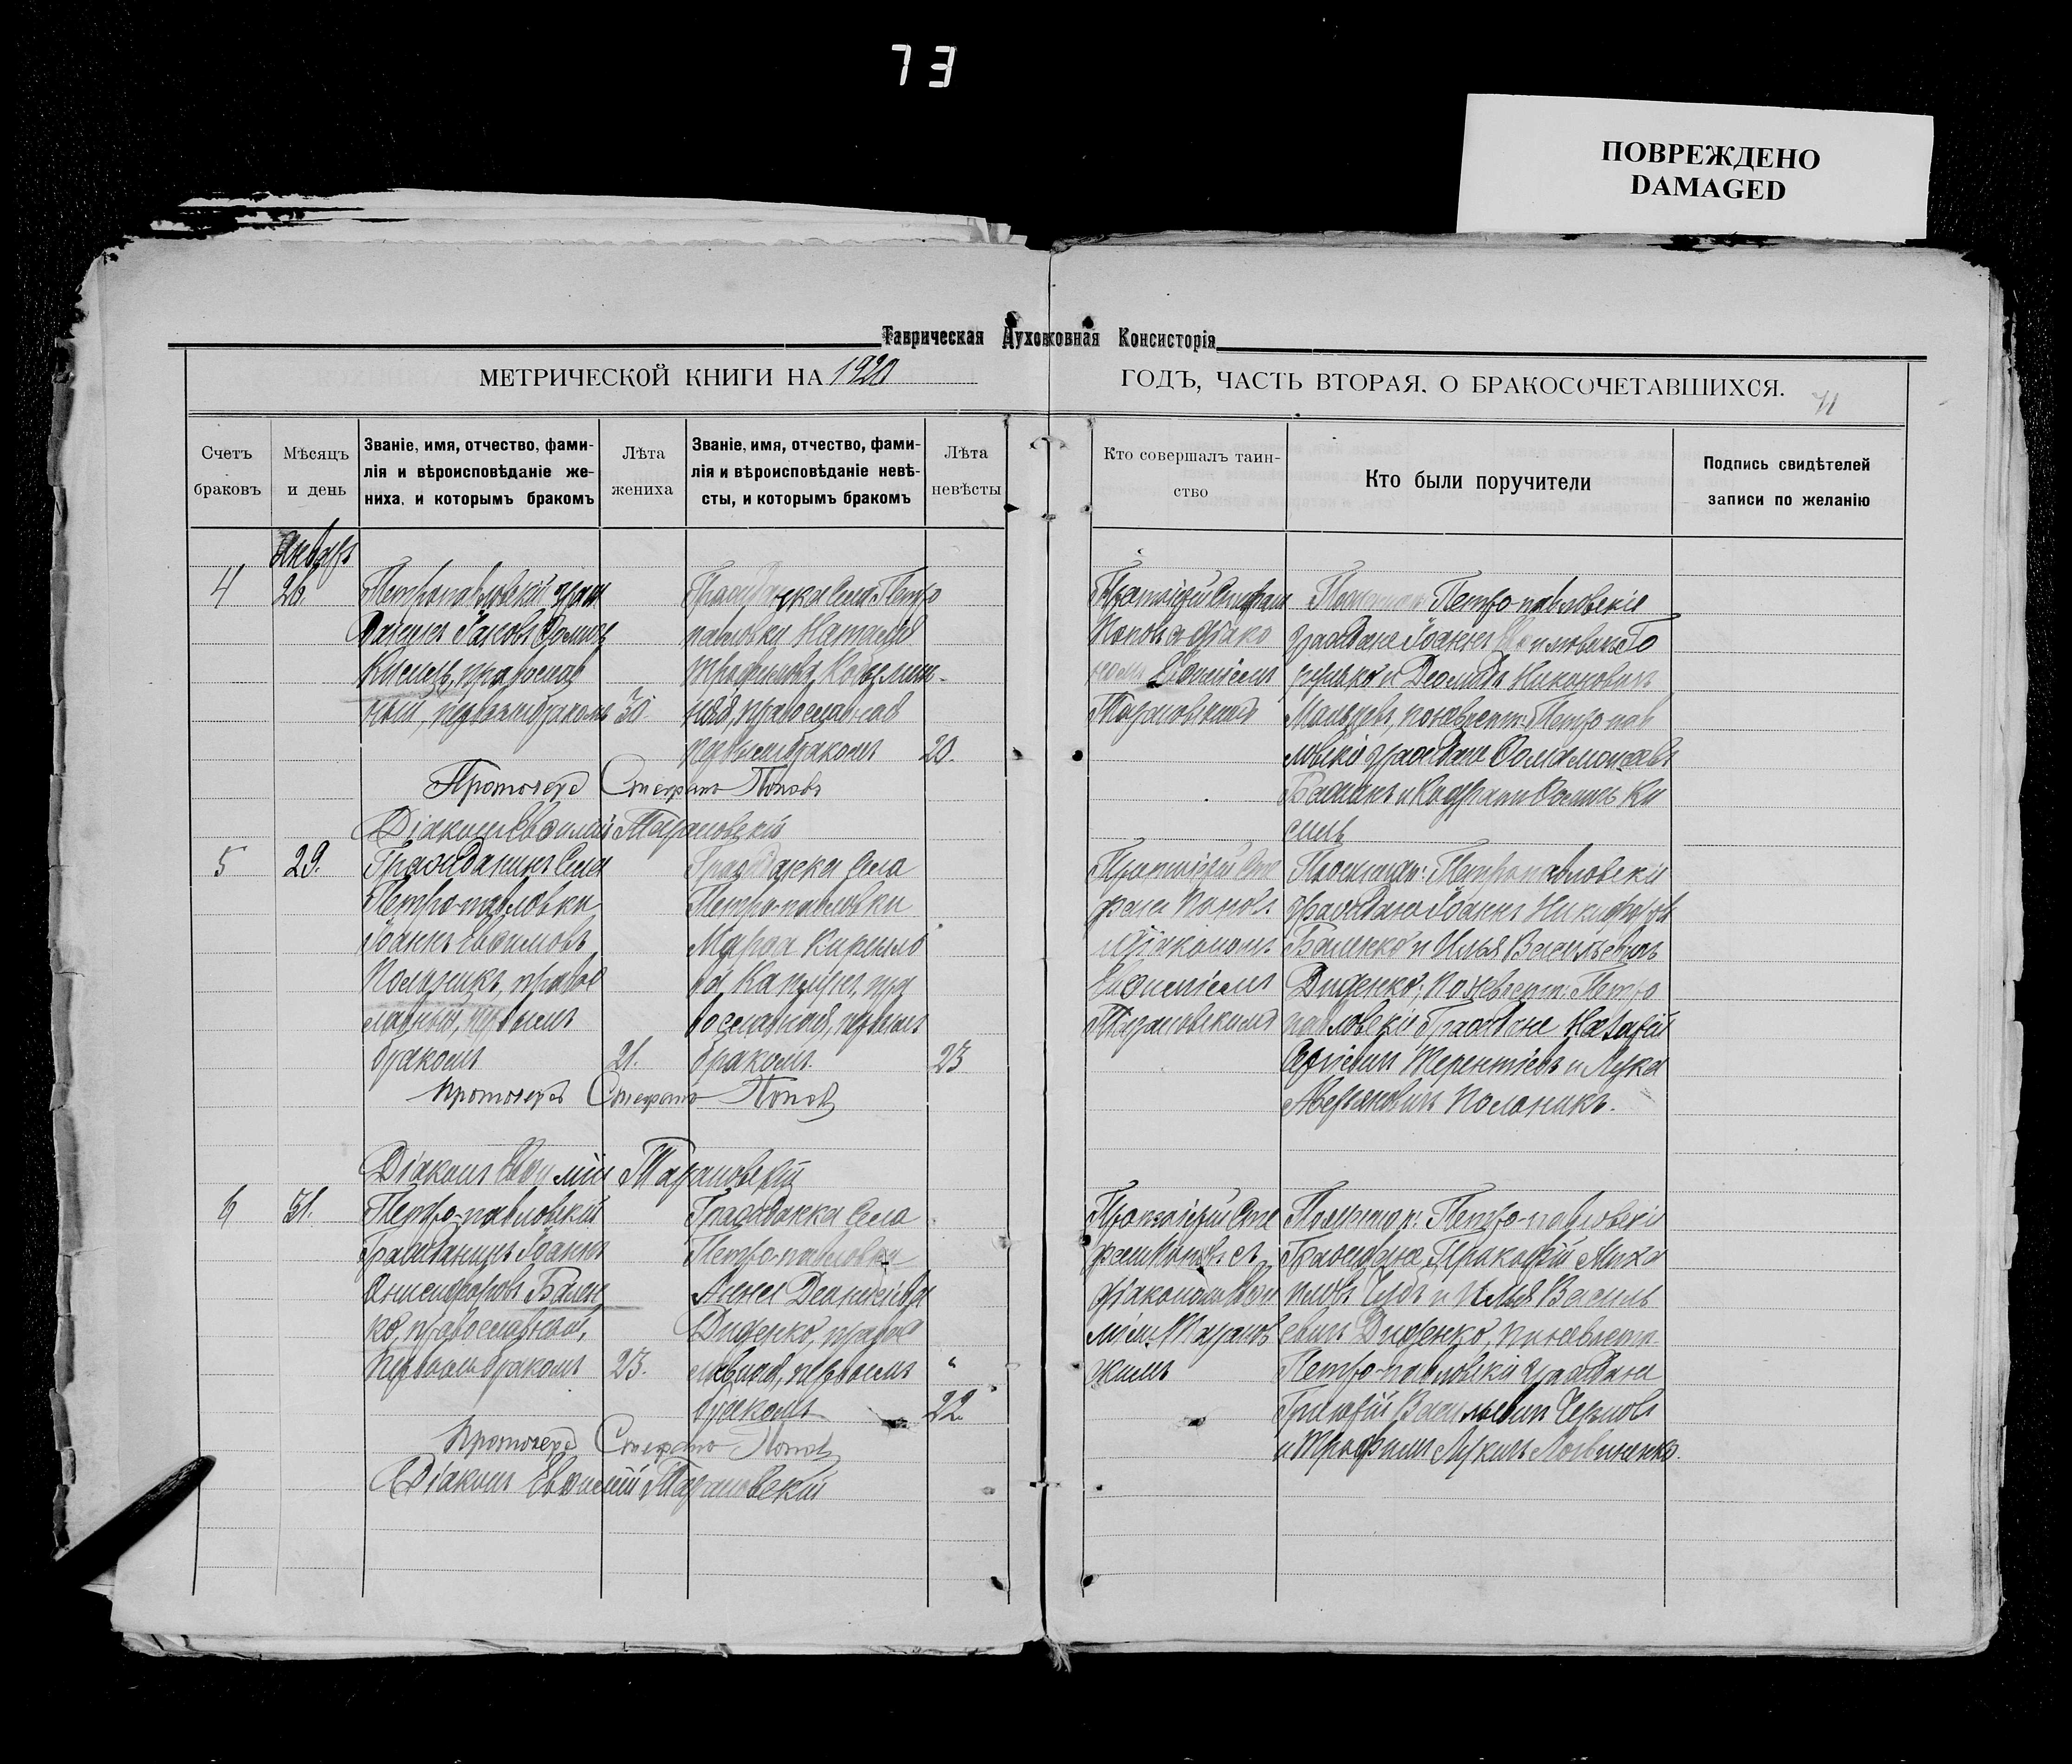 73
ПОВРЕЖДЕНО
DAMAGED
Таврическая Духовная Консисторія
МЕТРИЧЕСКОЙ КНИГИ НА 1920
ГОДЪ, ЧАСТЬ ВТОРАЯ, О БРАКОСОЧЕТАВШИХСЯ.
71
Счетъ
браковъ
Мѣсяцъ
и день
Званіе, имя, отчество, фами-
лія и вѣроисповѣданіе же-
ниха, и которымъ бракомъ
Лѣта
жениха
Званіе, имя, отчество, фами-
лія и вѣроисповѣданіе невѣ-
сты, и которымъ бракомъ
Лѣта
невѣсты
Кто совершалъ таин-
ство
Кто были поручители
Подпись свидѣтелей
записи по желанію
Январь
4
26.
Петропавловскій граж
данинъ Іаковъ
Кисиль, православ
ный, первымъ бракомъ
30.
Гражданка села Петро
павловки Наталія
Трофимова
ная, православная
первымъ бракомъ
20.
Протоіерей Стефанъ
Поповъ съ діако
номъ Евѳиміемъ
Тарановскимъ
Петро-павловскіе
граждане Іоаннъ
и Діомидъ Никоновичъ
по невѣстѣ: Петро-пав
ловскіе граждане
Ки
силь
Протоіерей Стефанъ Поповъ
Діаконъ Евѳимій Тарановскій
5
29.
Гражданинъ села
Петро-павловки
Іоаннъ Евѳимовъ
Полоникъ, правос
лавный, первымъ
бракомъ
21.
Гражданка села
Петро-павловки
Марѳа Кирилло
ва пра
вославная, первымъ
бракомъ.
23
Протоіерей Сте
фанъ Поповъ
съ діакономъ
Евѳиміемъ
Тарановскимъ
По женихѣ: Петропавловскіе
граждане Іоаннъ Никифоровъ
Баленко и Илья Васильевичъ
Диденко; по невѣстѣ: Петро
павловскіе граждане Назарій
Терентіевъ и Лука
Аверьяновичъ Полоникъ.
Протоіерей Стефанъ Поповъ
Діаконъ Евѳимій Тарановскій
6
31.
Петро-павловскій
гражданинъ Іоаннъ
Онисифоровъ Бален
ко, православный,
первымъ бракомъ
23.
Гражданка села
Петро-павловки
Анна Дементіева
Диденко, правос
лавная, первымъ
бракомъ
22.
Протоіерей Сте
фанъ Поповъ съ
діакономъ Евѳи
міемъ Таранов
скимъ
По женихѣ: Петро-павловскіе
граждане Прокофій Миха
иловъ и Илья Василь
евичъ Диденко, по невѣстѣ
Петро-павловскіе граждане
Григорій Васильевичъ Черновъ
и Трофимъ Лукичъ Логвиненко.
Протоіерей Стефанъ Поповъ
Діаконъ Евѳимій Тарановскій